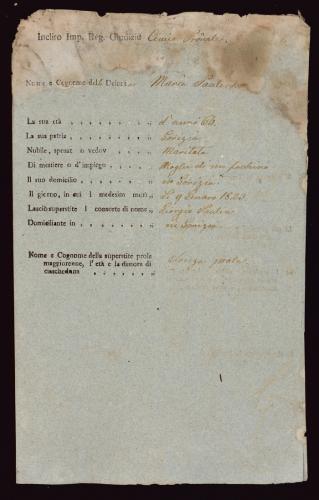 Inclito Imp. Reg. Giudizio Civico Prov.le
Nome e Cognome della Defunta Maria
La sua età d'anni 60.
La sua patria Gorizia
Nubile, sposat o vedov Maritata
Di mestiere o d'impiego Moglie di un facchino
Il suo domicilio in Gorizia
Il giorno, in cui l medesim morì Li 9 Genaro 1823
Lasciò superstite l consorte di nome Giorgio
Domiciliante in in Gorizia
Nome e Cognome della superstite prole
maggiorenne, l'età e la dimora di
ciaschedun senza prole